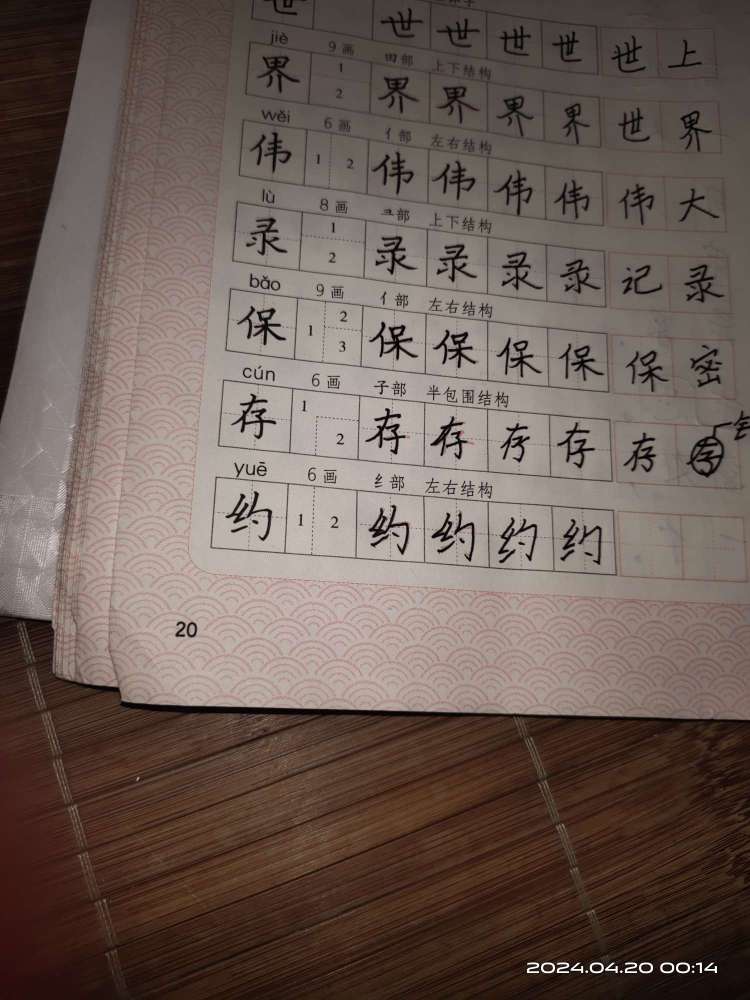 世 世 世 世 世 世 上
jiè 9画 田部 上下结构
界 1 2 界 界 界 界 世 界
wěi 6画 亻部 左右结构
伟 1 2 伟 伟 伟 伟 伟 大
lù 8画 彐部 上下结构
录 1 2 录 录 录 录 记 录
bǎo 9画 亻部 左右结构
保 1 2 3 保 保 保 保 保 密
cún 6画 子部 半包围结构
存 1 2 存 存 存 存 存
yuē 6画 纟部 左右结构
约 1 2 约 约 约 约
20
2024.04.20 00:14